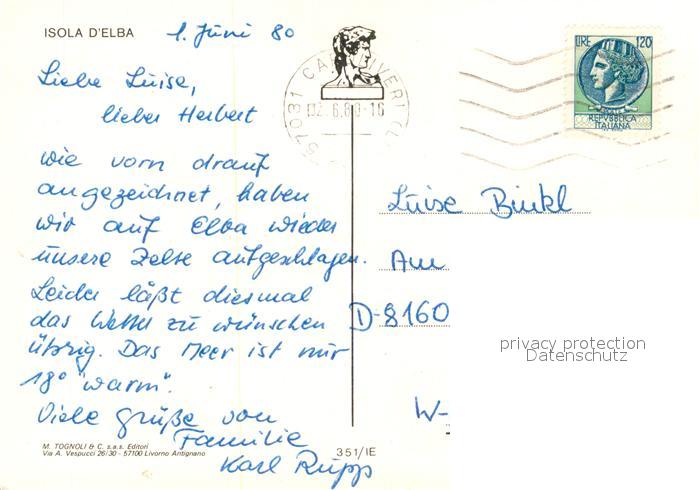 ISOLA D'ELBA
1. Juni 80
Liebe Luise,
lieber Herbert
wie vorn drauf
angezeichnet, haben
wir auf Elba wieder
unsere Zelte aufgeschlagen.
Leider läßt diesmal
das Wetter zu wünschen
übrig. Das Meer ist nur
18° "warm".
Viele Grüße von
Familie
Karl Rupp
M. TOGNOLI & C. s.a.s. Editori
Via A. Vespucci 26/30 - 57100 Livorno Antignano
351/IE
57031 CAPOLIVERI (LI)
02.6.80-16
LIRE 120
REPVBBLICA
ITALIANA
Luise Binkl
Am
D-8160
W-
privacy protection
Datenschutz